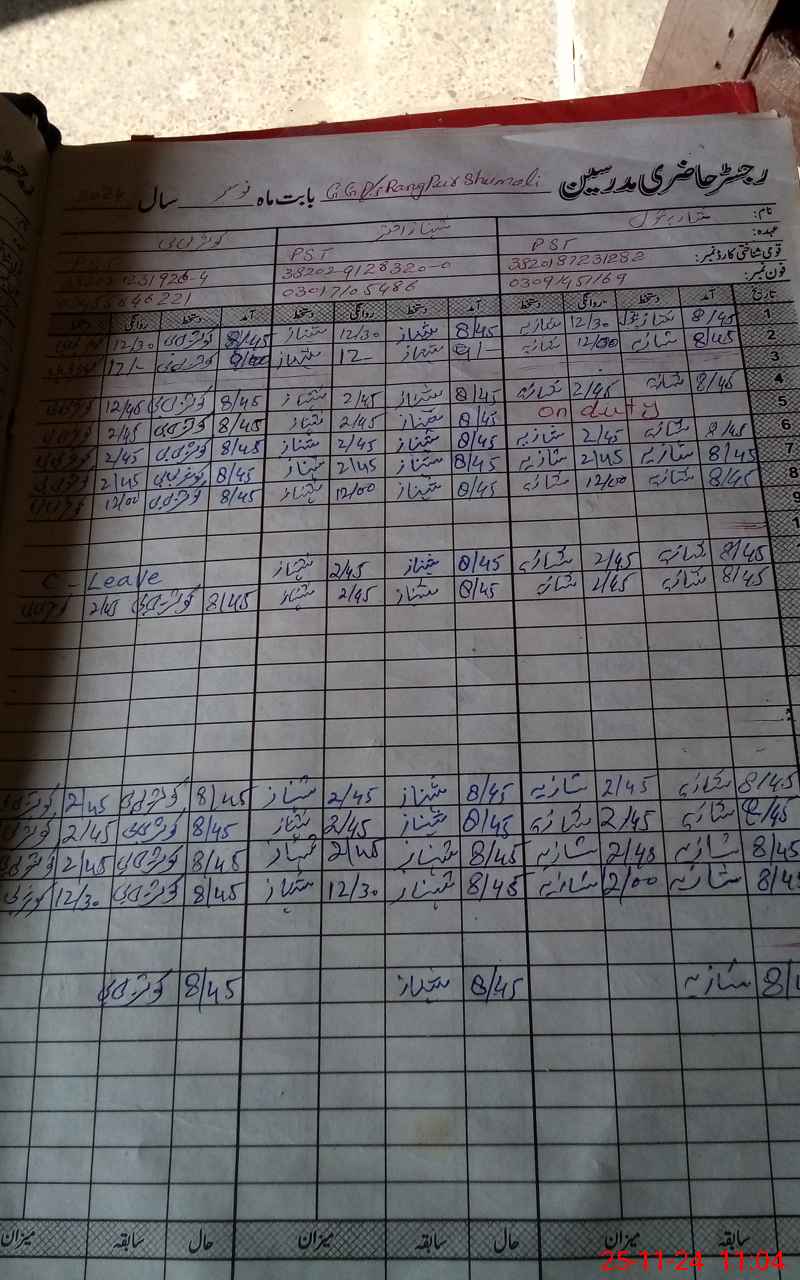 رجسٹر حاضری مدرسین G.G.P/S Rang Pur Shumali بابت ماہ نومبر سال 2024
نام: شازیہ بتول شہناز اختر کوثر بی بی
عہدہ: PST PST
قومی شناختی کارڈ نمبر: 3820187231282 38202-9128320-0
فون نمبر: 03017105486
تاریخ آمد دستخط روانگی دستخط آمد دستخط روانگی دستخط آمد دستخط روانگی دستخط
1 8/45 شازیہ بتول 12/30 شازیہ 8/45 شہناز 12/30 شہناز 8/45 کوثر بی بی 12/30
2 8/45 شازیہ 12/00 شازیہ 9/- شہناز 12- شہناز 9/00 کوثر بی بی 12/-
3
4 8/45 شازیہ 2/45 شازیہ 8/45 شہناز 2/45 شہناز 8/45 کوثر بی بی 12/45 کوثر بی بی
5 on duty 8/45 شہناز 2/45 شہناز 8/45 کوثر بی بی 2/45 کوثر بی بی
6 8/45 شازیہ 2/45 شازیہ 8/45 شہناز 2/45 شہناز 8/45 کوثر بی بی 2/45 کوثر بی بی
7 8/45 شازیہ 2/45 شازیہ 8/45 شہناز 2/45 شہناز 8/45 کوثر بی بی 2/45 کوثر بی بی
8 8/45 شازیہ 12/00 شازیہ 8/45 شہناز 12/00 شہناز 8/45 کوثر بی بی 12/00 کوثر بی بی
9
1
8/45 شازیہ 2/45 شازیہ 8/45 شہناز 2/45 شہناز C - Leave
8/45 شازیہ 2/45 شازیہ 8/45 شہناز 2/45 شہناز 8/45 کوثر بی بی 2/45 کوثر بی بی
8/45 شازیہ 2/45 شازیہ 8/45 شہناز 2/45 شہناز 8/45 کوثر بی بی 2/45 کوثر بی بی
8/45 شازیہ 2/45 شازیہ 8/45 شہناز 2/45 شہناز 8/45 کوثر بی بی 2/45 کوثر بی بی
8/45 شازیہ 2/45 شازیہ 8/45 شہناز 2/45 شہناز 8/45 کوثر بی بی 2/45 کوثر بی بی
8/45 شازیہ 12/00 شازیہ 8/45 شہناز 12/30 شہناز 8/45 کوثر بی بی 12/30 کوثر بی بی
شازیہ 8/45 شہناز 8/45 کوثر بی بی
سابقہ میزان حال سابقہ میزان حال سابقہ میزان
25-11-24 11:04